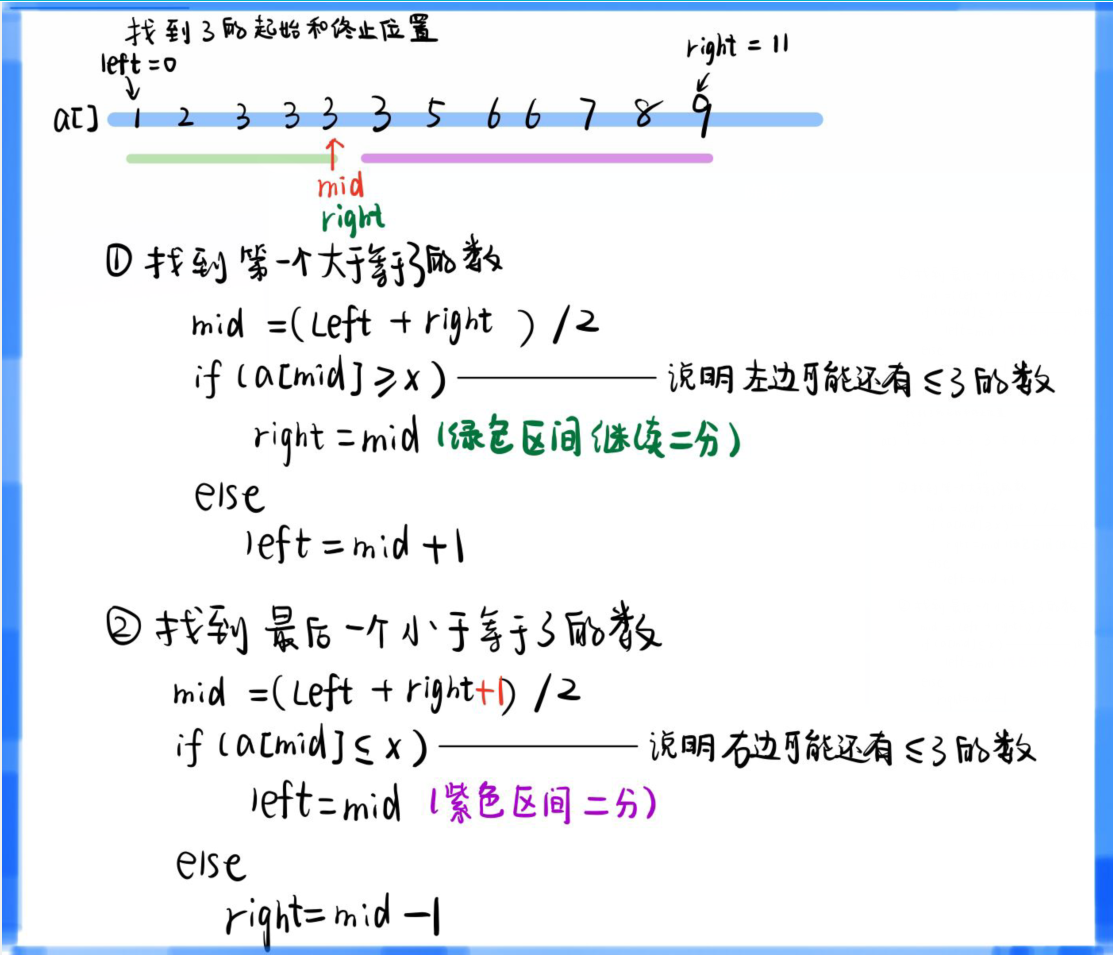 找到3的起始和终止位置
left=0
right = 11
a[] 1 2 3 3 3 3 5 6 6 7 8 9
mid
right
① 找到第一个大于等于3的数
mid =(left + right ) /2
if (a[mid]≥x) 说明左边可能还有≤3的数
right=mid (绿色区间继续二分)
else
left=mid+1
② 找到最后一个小于等于3的数
mid =(left + right+1) /2
if (a[mid]≤x) 说明右边可能还有≤3的数
left=mid (紫色区间二分)
else
right=mid-1